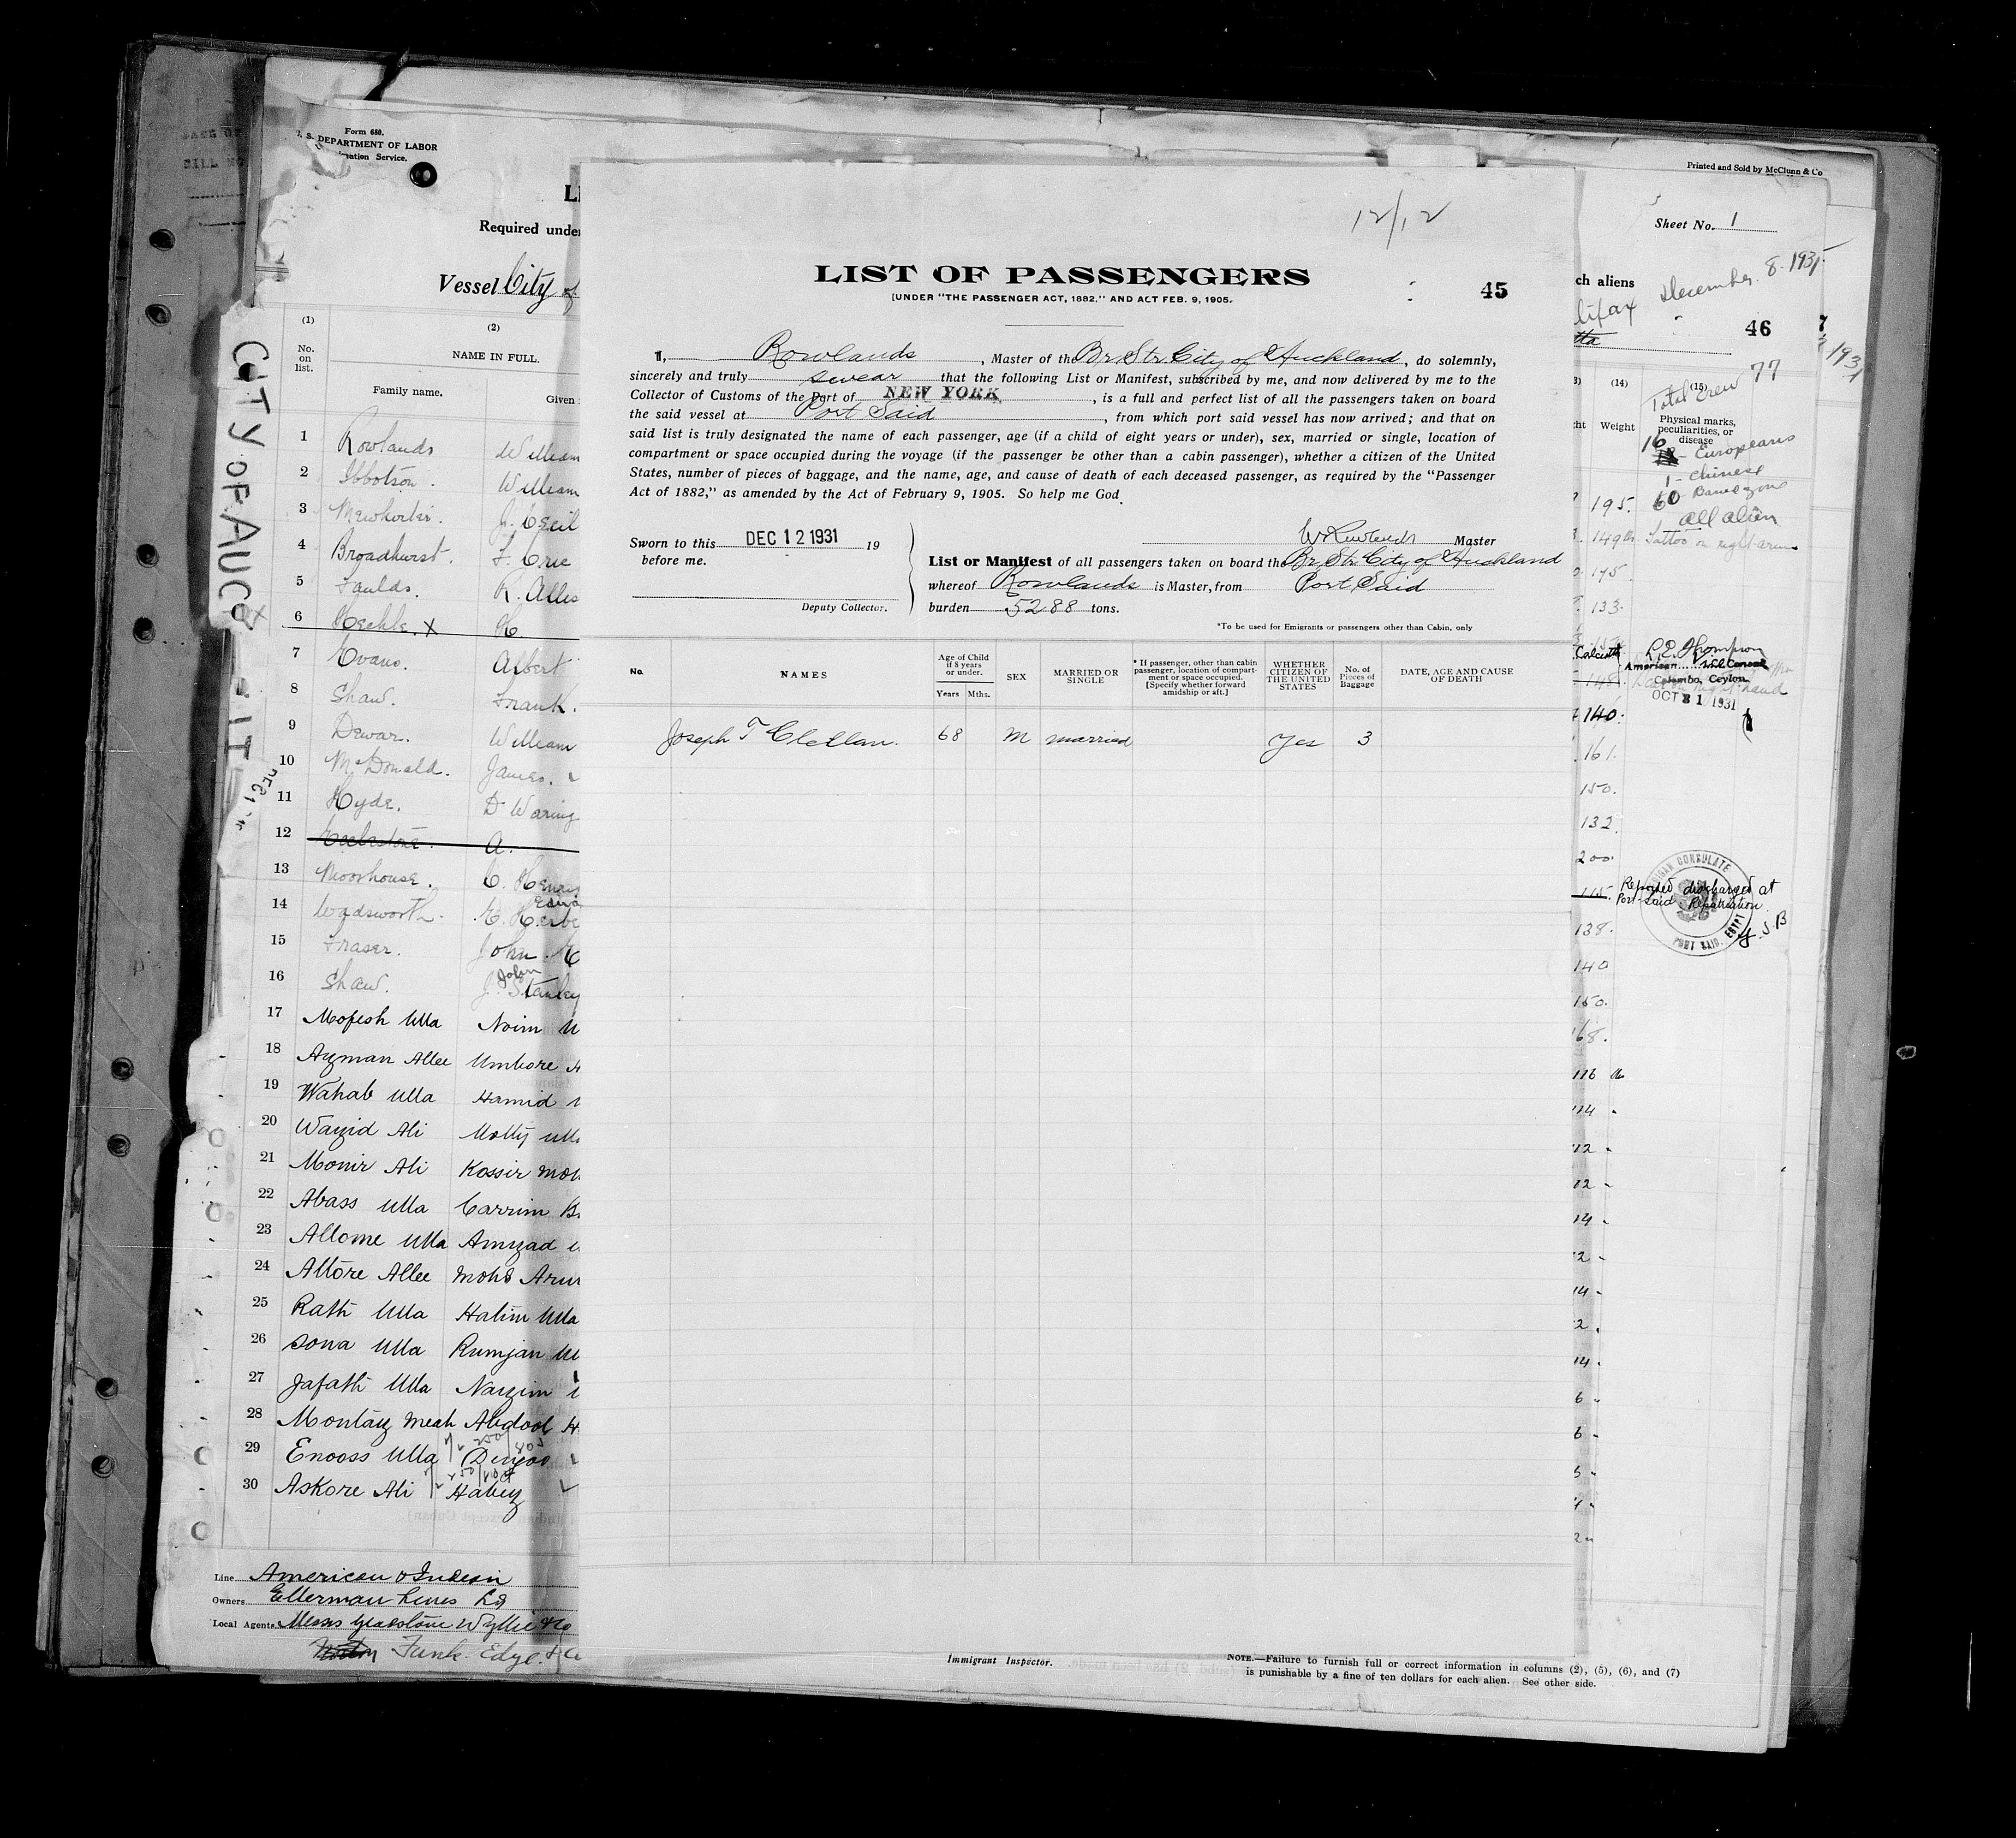 Form 680.
U. S. DEPARTMENT OF LABOR
Service.
Required under
Vessel City of
(1)
No. on list.
(2)
NAME IN FULL.
Family name.
Given
CITY OF AUC
1 Rowlands William
2 Ibbotson. William
3 J. Cecil
4 Broadhurst. F. Eric
5 Faulds. R.
6 X H.
7 Evans. Albert
8 Shaw. Frank.
9 Dewar. William
10 McDonald. James.
11 Hyde. D Waring
12 A.
13 Moorhouse. C. Henry
14 Wadsworth.
15 Fraser. John.
16 Shaw. J. Stanley
John
17 Mofesh Ulla Noim
18 Ayman Allee Umbore
19 Wahab Ulla Hamid
20 Wayid Ali Molly
21 Monir Ali Kossir
22 Abass Ulla Carrim
23 Allome Ulla Amyzad
24 Attore Allee Mohd
25 Rath Ulla Halim Ulla
26 Sona Ulla Rumjan
27 Jafath Ulla Nayim
28 Montay Meah Abdool
29 Enooss Ulla
30 Askore Ali
Line American & Indian
Owners Ellerman Lines Ld
Local Agents Messrs Gladstone Wyllie & Co
Funk. Edye. &
12/12
LIST OF PASSENGERS
[UNDER "THE PASSENGER ACT, 1882," AND ACT FEB. 9, 1905.
45
I, Rowlands, Master of the Br. Str. City of Auckland, do solemnly,
sincerely and truly swear that the following List or Manifest, subscribed by me, and now delivered by me to the
Collector of Customs of the Port of NEW YORK, is a full and perfect list of all the passengers taken on board
the said vessel at Port Said, from which port said vessel has now arrived; and that on
said list is truly designated the name of each passenger, age (if a child of eight years or under), sex, married or single, location of
compartment or space occupied during the voyage (if the passenger be other than a cabin passenger), whether a citizen of the United
States, number of pieces of baggage, and the name, age, and cause of death of each deceased passenger, as required by the "Passenger
Act of 1882," as amended by the Act of February 9, 1905. So help me God.
Sworn to this DEC 12 1931 19
before me.
Deputy Collector.
W Rowlands Master
List or Manifest of all passengers taken on board the Br. Str. City of Auckland
whereof Rowlands is Master, from Port Said
burden 5288 tons.
*To be used for Emigrants or passengers other than Cabin, only
No.
NAMES
Age of Child if 8 years or under.
Years Mths.
SEX
MARRIED OR SINGLE
* If passenger, other than cabin passenger, location of compartment or space occupied. [Specify whether forward amidship or aft.]
WHETHER CITIZEN OF THE UNITED STATES
No. of Pieces of Baggage
DATE, AGE AND CAUSE OF DEATH
Joseph T Clellan. 68 M married Yes 3
Printed and Sold by McClunn & Co
Sheet No. 1
ch aliens
December 8. 1931
lifax
46
77
(14)
(15)
Total Crew
Weight
Physical marks, peculiarities, or disease
16 - Europeans
1 - Chinese
60
All alien
195.
149 Tattoo on right arm
145.
133.
Calcutta
American Vice Consul
Colombo, Ceylon
OCT 31 1931
148.
right hand
140.
161.
150.
132.
200.
AMERICAN CONSULATE
PORT SAID, EGYPT
115. Reported discharged at
Port-Said Repatriation
J. B
138.
140
150.
68.
116
114
12
12
14
12
14
2
14
6
6
5
4
2
Immigrant Inspector.
NOTE.—Failure to furnish full or correct information in columns (2), (5), (6), and (7)
is punishable by a fine of ten dollars for each alien. See other side.